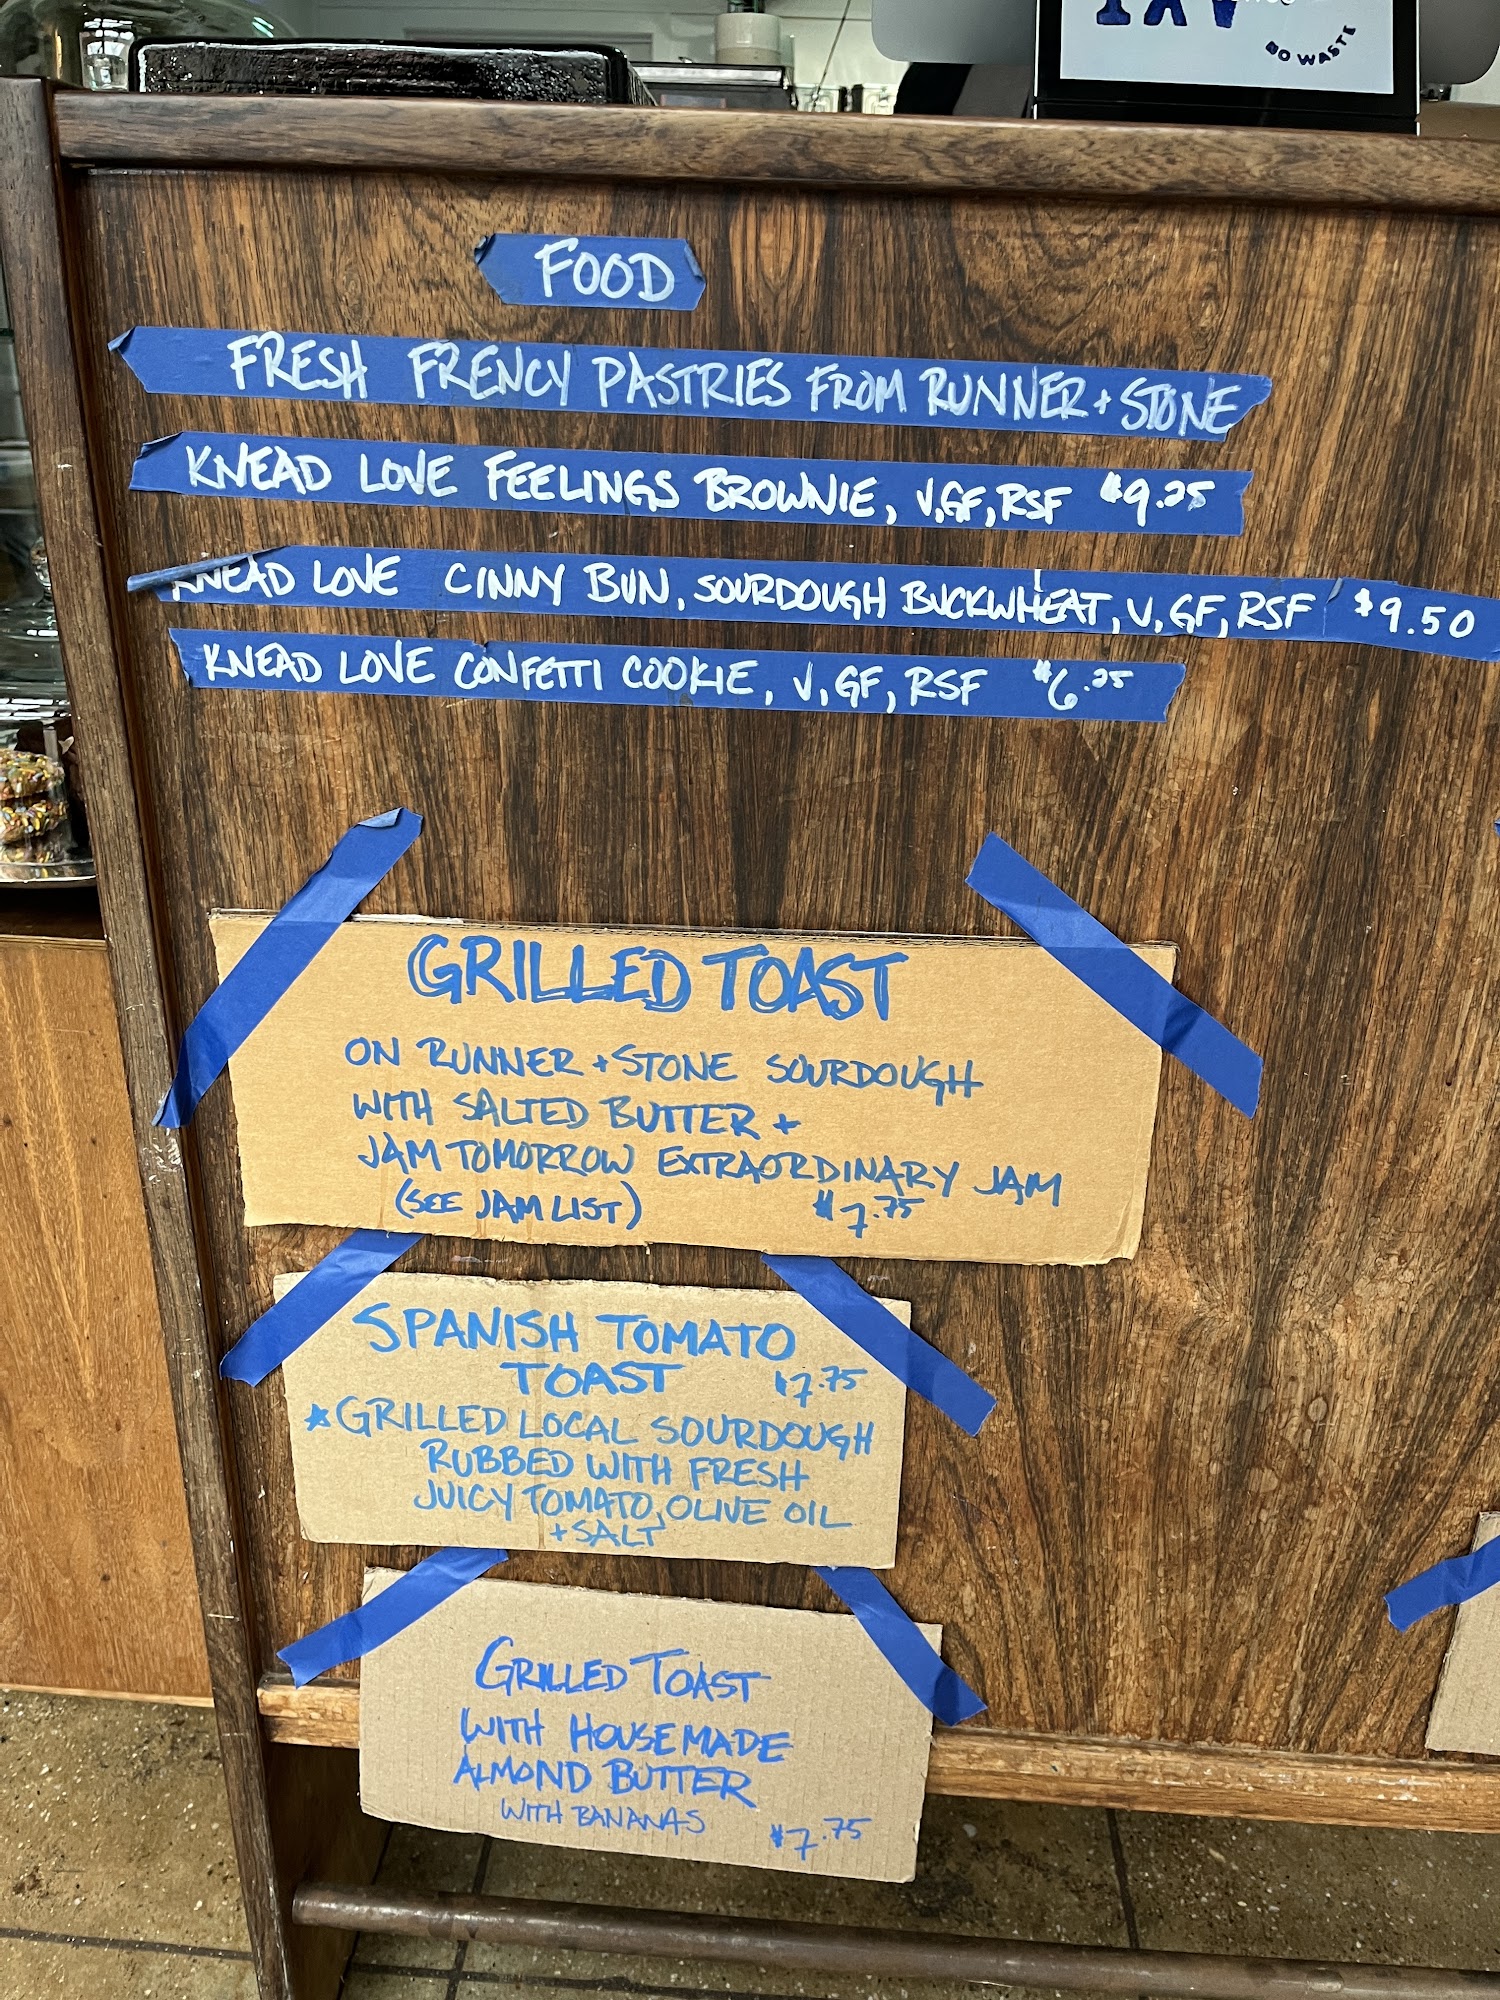 NO WASTE
FOOD
FRESH FRENCY PASTRIES FROM RUNNER + STONE
KNEAD LOVE FEELINGS BROWNIE, V,GF,RSF $9.25
KNEAD LOVE CINNY BUN, SOURDOUGH BUCKWHEAT, V, GF, RSF $9.50
KNEAD LOVE CONFETTI COOKIE, V, GF, RSF $6.25
GRILLED TOAST
ON RUNNER + STONE SOURDOUGH
WITH SALTED BUTTER +
JAM TOMORROW EXTRAORDINARY JAM
(SEE JAM LIST) $7.75
SPANISH TOMATO
TOAST $7.75
★GRILLED LOCAL SOURDOUGH
RUBBED WITH FRESH
JUICY TOMATO, OLIVE OIL
+ SALT
GRILLED TOAST
WITH HOUSEMADE
ALMOND BUTTER
WITH BANANAS $7.75